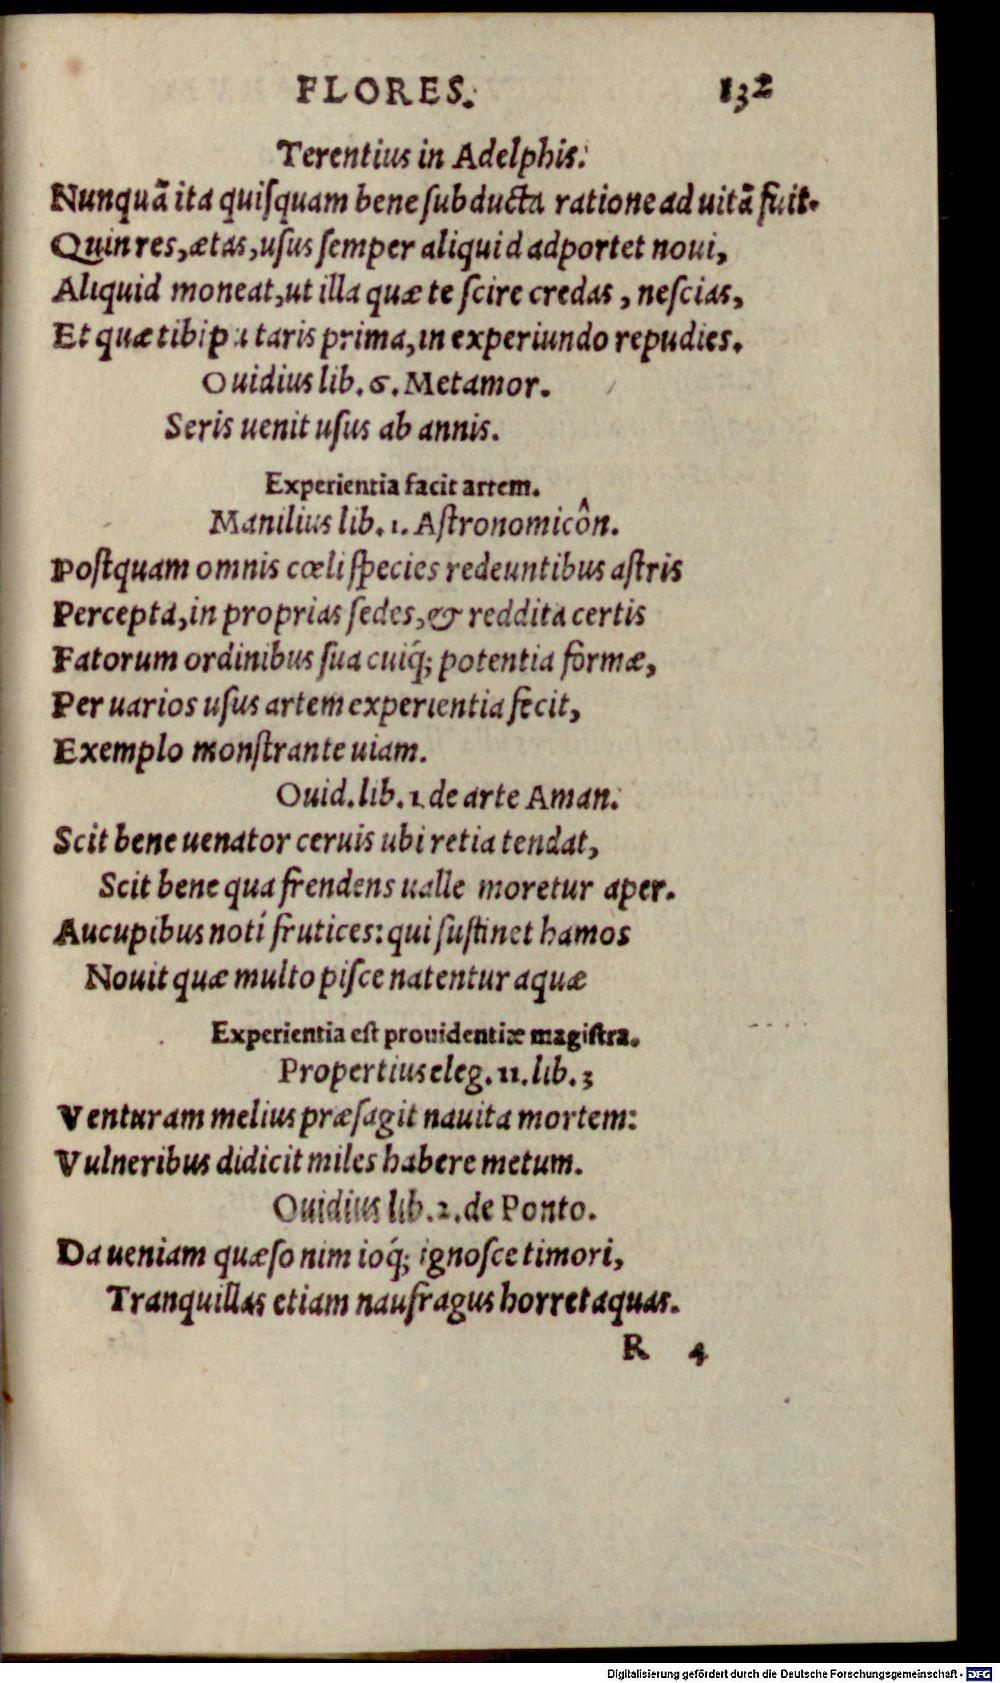 FLORES. 132
Terentius in Adelphis.
Nunquã ita quiſquam bene ſubducta ratione ad uitã fuit.
Quin res, ætas, uſus ſemper aliquid adportet noui,
Aliquid moneat, ut illa quæ te ſcire credas, neſcias,
Et quæ tibi putaris prima, in experiundo repudies.
Ouidius lib. 6. Metamor.
Seris uenit uſus ab annis.
Experientia facit artem.
Manilius lib. 1. Aſtronomicôn.
Poſtquam omnis cœli ſpecies redeuntibus aſtris
Percepta, in proprias ſedes, & reddita certis
Fatorum ordinibus ſua cuiq́; potentia formæ,
Per uarios uſus artem experientia fecit,
Exemplo monſtrante uiam.
Ouid. lib. 1 de arte Aman.
Scit bene uenator ceruis ubi retia tendat,
Scit bene qua frendens ualle moretur aper.
Aucupibus noti frutices: qui ſuſtinet hamos
Nouit quæ multo piſce natentur aquæ
Experientia eſt prouidentiæ magiſtra.
Propertius eleg. 11. lib. 3
Venturam melius præſagit nauita mortem:
Vulneribus didicit miles habere metum.
Ouidius lib. 2. de Ponto.
Da ueniam quæſo nimioq́; ignoſce timori,
Tranquillas etiam naufragus horret aquas.
R 4
Digitalisierung gefördert durch die Deutsche Forschungsgemeinschaft - DFG